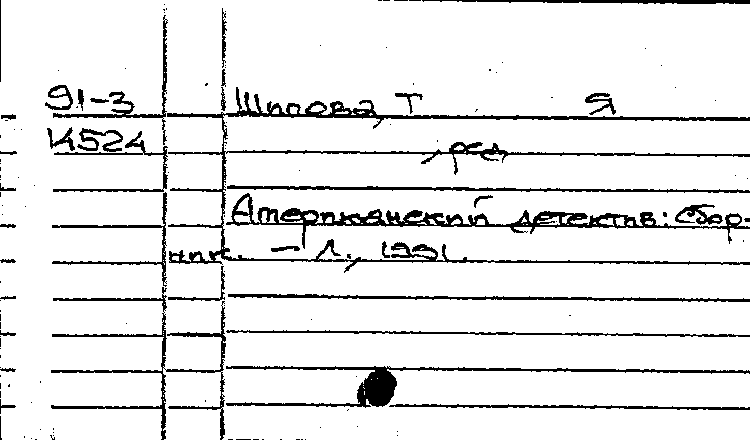 91-3 Шипова, Т Я
14524 , ред
Американский детектив: Сбор-
ник. — Л., 1991.